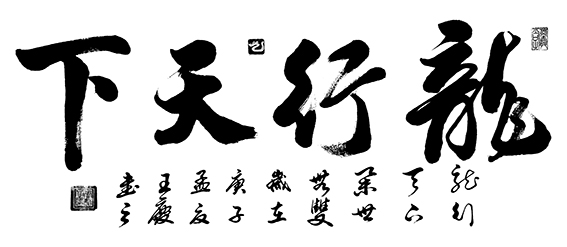 龍行天下
龍行
天下
舉世
無雙
歲在
庚子
孟夏
王慶
書之